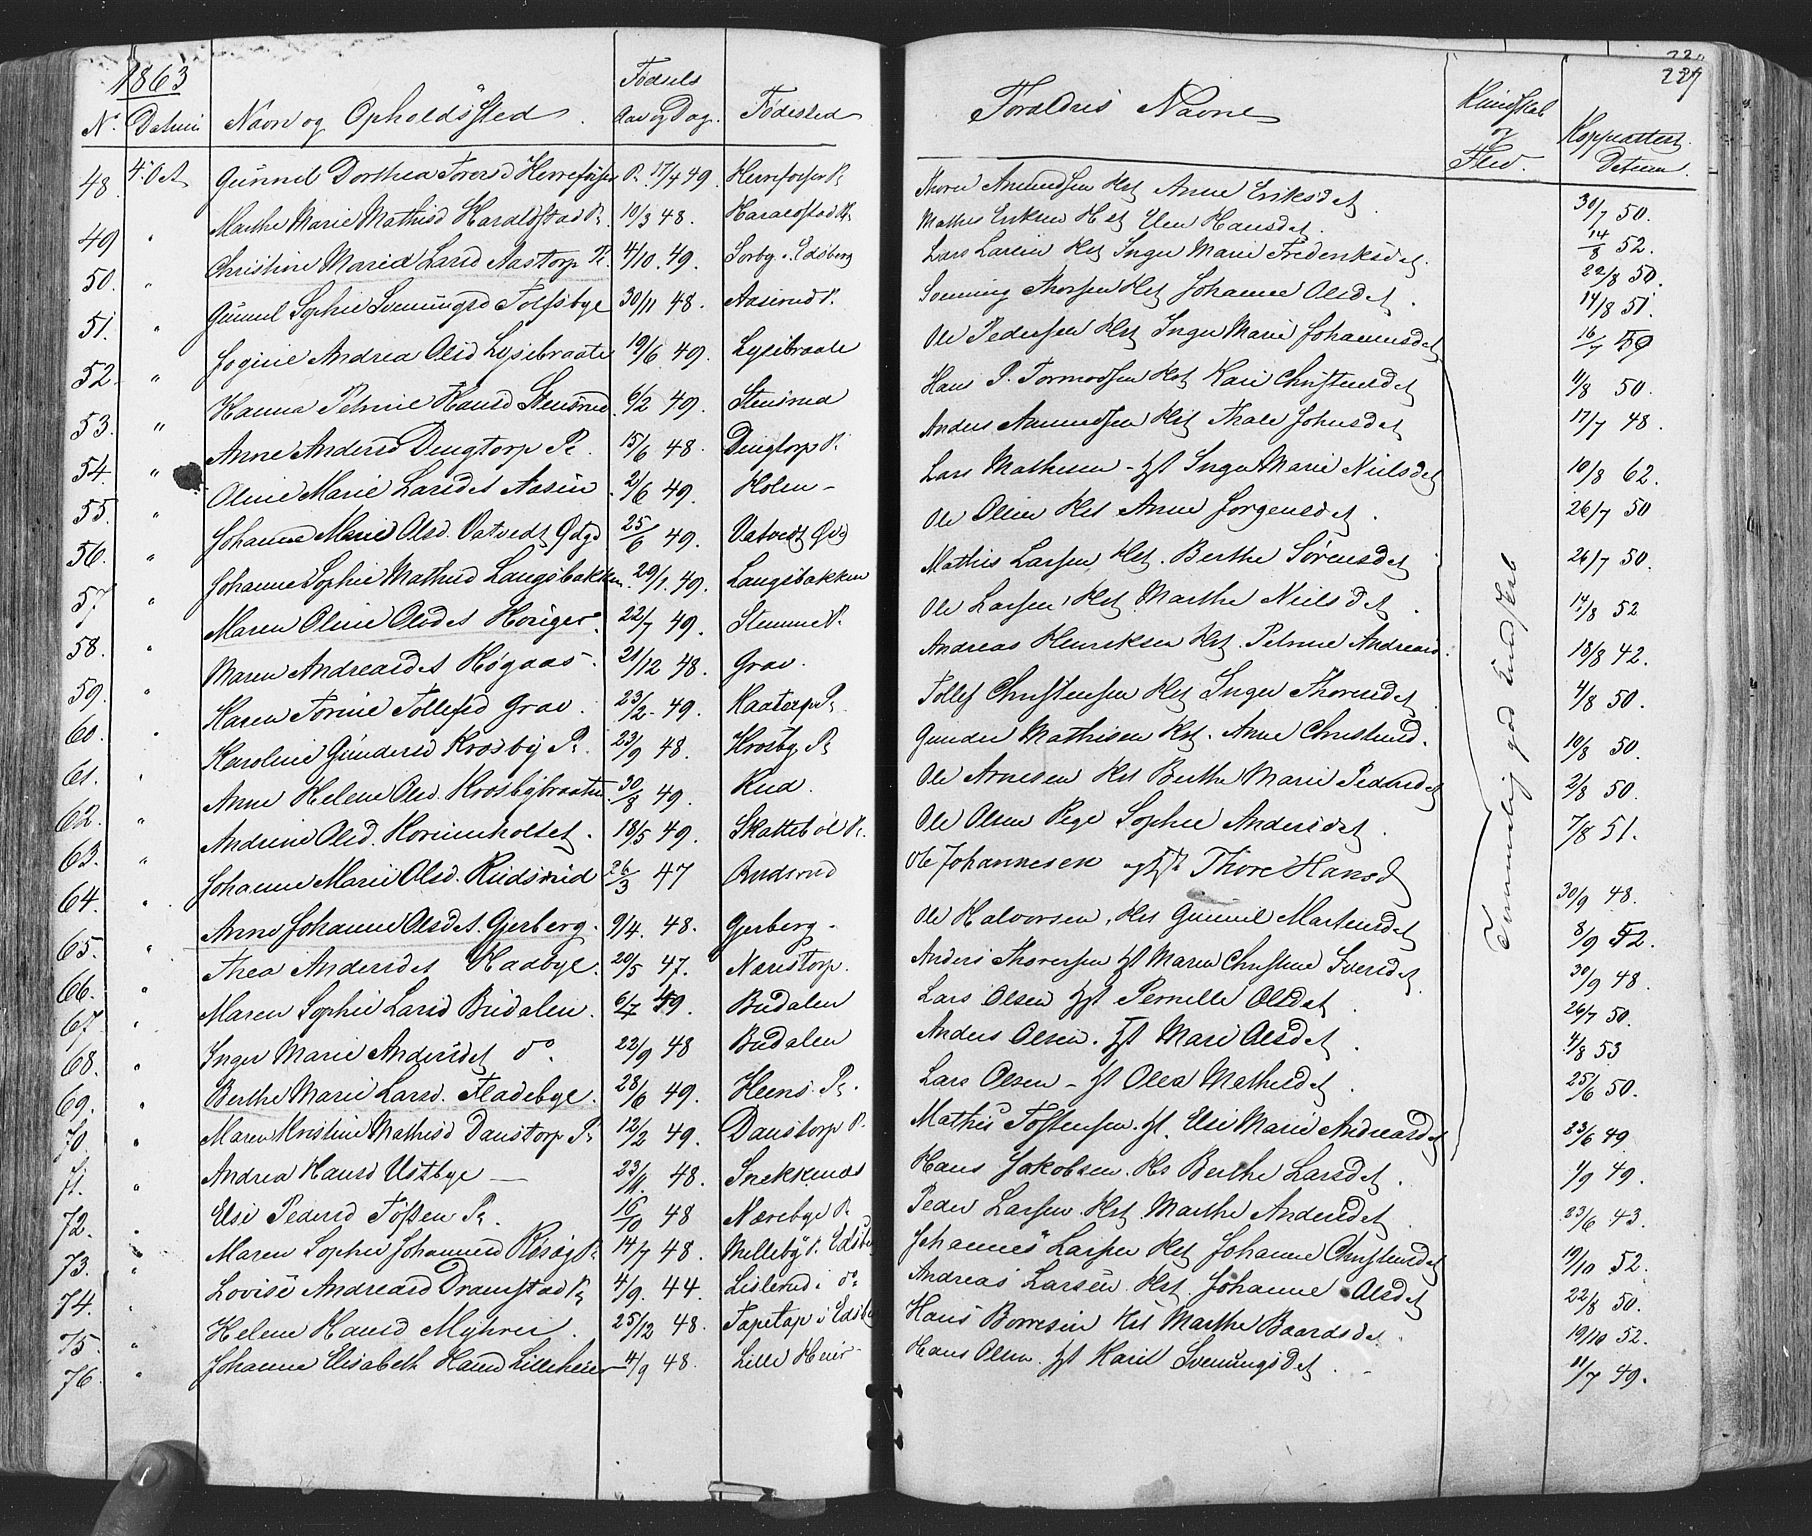 1863
229
N. Datum Navn og Opholdssted Fødsels Aar og Dag. Fødested Forældres Navne Kundskab og Flid. Koppeattest Datum.
48. 4. Oct Gunnel Dorthea Torersd Herrefosser P. 17/4 49. Herrefosser P. Thorer Amundsen Kst Anne Eriksdet 30/7 50.
49 " Marthe Marie Mathisd Haraldstad P. 10/3 48. Haraldstad P. Mathis Eriksen Kst Elen Hansdet. 14/8 52.
50. " Christine Maria Larsd Aastorp P. 4/10. 49. Sorby i Edsberg Lars Larsen Kst Inger Marie Frederiksdet. 22/8 50.
51. " Gunnel Sophie Svenningsd Tolfsbye 30/11 48. Aaserud P. Svenning Thorsen Kst Johanne Olsdet. 14/8 51.
52. " Jogine Andrea Olsd Lysebraate 19/6. 49. Lysebraate Ole Pedersen Kst Inger Marie Johannesdet 16/7 59
53. " Hanna Petrine Hansd Stensrud. 6/2 49. Stensrud Hans P. Tormodsen Kst Kari Christensdet 11/8 50.
54. " Anne Andersd Dingtorp P. 15/6 48. Dingtorp P. Anders Amundsen Kst Thale Johnsdet 17/7 48.
55. " Oline Marie Larsdet Aasen 2/6 49. Holen Lars Mathesen - gft Inger Marie Nielsdet 10/8 62.
56. " Johanne Marie Olsd. Vatvedt Qdgd 25/6 49. Vatvedt Qdg Ole Olsen Kst Anne Jorgensdet. 26/7 50
57 " Johanne Sophie Mathisd Langsbakken. 29/1. 49. Langsbakken Mathis Larsen Kst. Berthe Sørensdet 26/7 50.
58. " Maren Oline Olsdet Høriger. 22/7 49. Stemme P. Ole Larsen Kst Marthe Nielsdet. 14/8 52
59. " Maren Andreasdet Høgaas. 21/12 48. Grav. Andreas Henriksen Kst. Petrine Andreasd. 18/8 42.
60. " Karen Torine Tollefsd Grav. 23/2. 49. Kaatorp P. Tollef Christensen Kst Inger Thorersdet 4/8 50.
61. " Karoline Gundersd Krosby P. 23/9 48. Krosby P. Gunder Mathisen Kst. Anne Christensd. 10/8 50.
62. " Anne Helene Olsd. Krosbybraaten 30/8 49. Rud. Ole Arnesen Kst Berthe Marie Pedersdet 2/8 50.
63. " Andrine Olsd. Korsenholtet. 18/5 49. Skattebøl P. Ole Olsen Pige Sophie Andersdet. 7/8 51.
64. " Johanne Marie Olsd. Rudsrud 26/3 47 Rudsrud Ole Johannesen og gft Thore Hansd 30/9 48.
65. " Anne Johanne Olsdet. Gjerberg. 9/4. 48. Gjerberg. Ole Halvorsen, Kst Gunnil Martensdet 8/9 52.
66. " Thea Andersdet Haabye. 20/5 47. Næristorp. Anders Thoresen gft Maren Christine Iversdet 30/9 48.
67. " Maren Sophie Larsd Budalen. 6/4 49. Budalen Lars Olsen gft Pernille Olsdet. 26/7 50.
68. " Inger Marie Andersdet do. 22/9 48 Budalen Anders Olsen. gft Mari Olsdet. 4/8 53
69. " Berthe Marie Larsd. Fladebye. 28/6 49. Heens P. Lars Olsen - gt Olea Mathisdet. 25/6 50.
70. " Maren Kristine Mathisd Danstorp P. 12/2 49. Danstorp P. Mathis Toftensen. gt. Elsi Marie Andreasdet 23/6 49.
71. " Andrea Hansd Ustbye 23/11. 48. Snekkenæs Hans Jakobsen. Ks Berthe Larsdet. 1/9 49.
72. " Elsi Pedersd Toften P. 16/10 48 Nærebye P. Peder Larsen Kst Marthe Andersdet. 23/6 43.
73. " Maren Sophie Johannesd Røsæg P. 14/7 48. Milleby P. Edsberg Johannes Larsen Kst Johanne Christensdet 19/10 52.
74. " Lovise Andreasd Dramstad P. 4/9. 44. Lislerud i do Andreas Larsen Kst Johanne Olsdet 22/8 50.
75. " Helene Hansd Myhrer. 25/12 48. Tapetap i Edsberg Hans Borresen Kst Marthe Baardsdet. 19/10 52.
76. " Johanne Elisabeth Hansd Lilleheier 4/9 48. Lille Heier Hans Olsen. gft Karil Svenungsdet. 11/7 49.
Temmelig god Kundskab